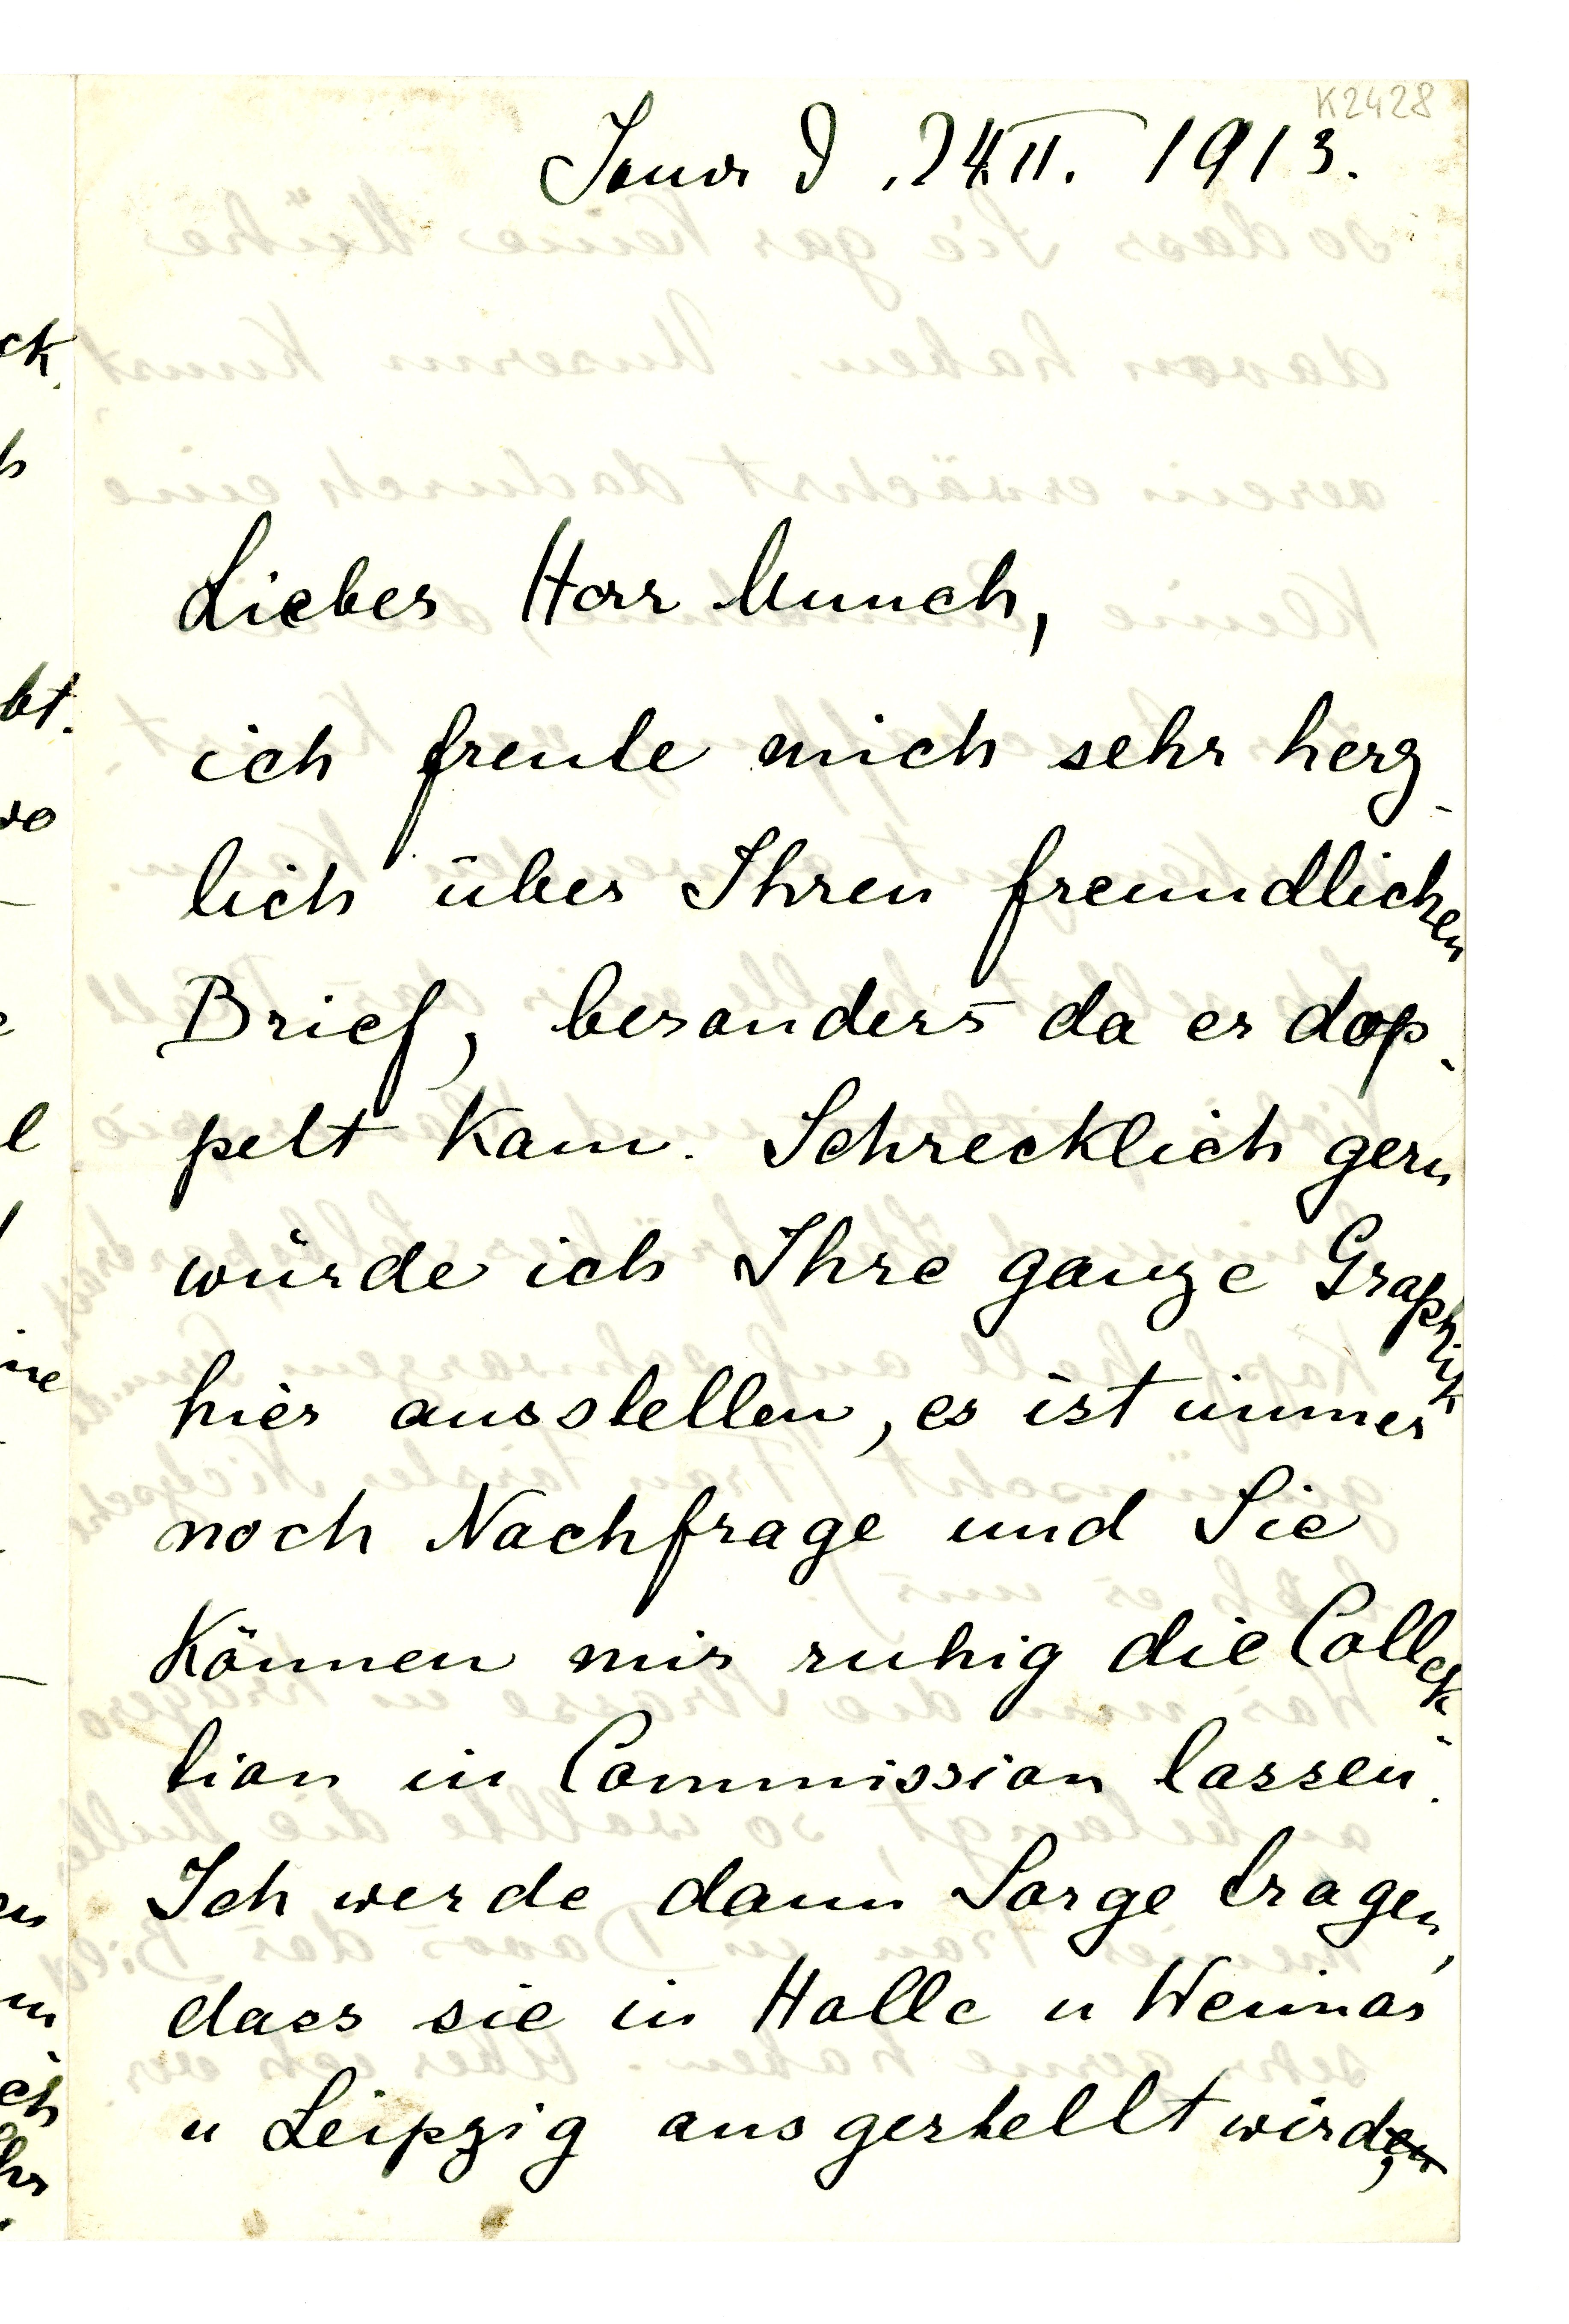 K2428
Jena d. 24 II. 1913.
Lieber Herr Munch,
ich freute mich sehr herz-
lich über Ihren freundlichen
Brief, besonders da er dop-
pelt kam. Schrecklich gern
würde ich Ihre ganze Graphik
hier ausstellen, es ist immer
noch Nachfrage und Sie
können mir ruhig die Collek-
tion in Commission lassen.
Ich werde dann Sorge tragen,
dass sie in Halle u Weimar
u Leipzig ausgestellt wird,